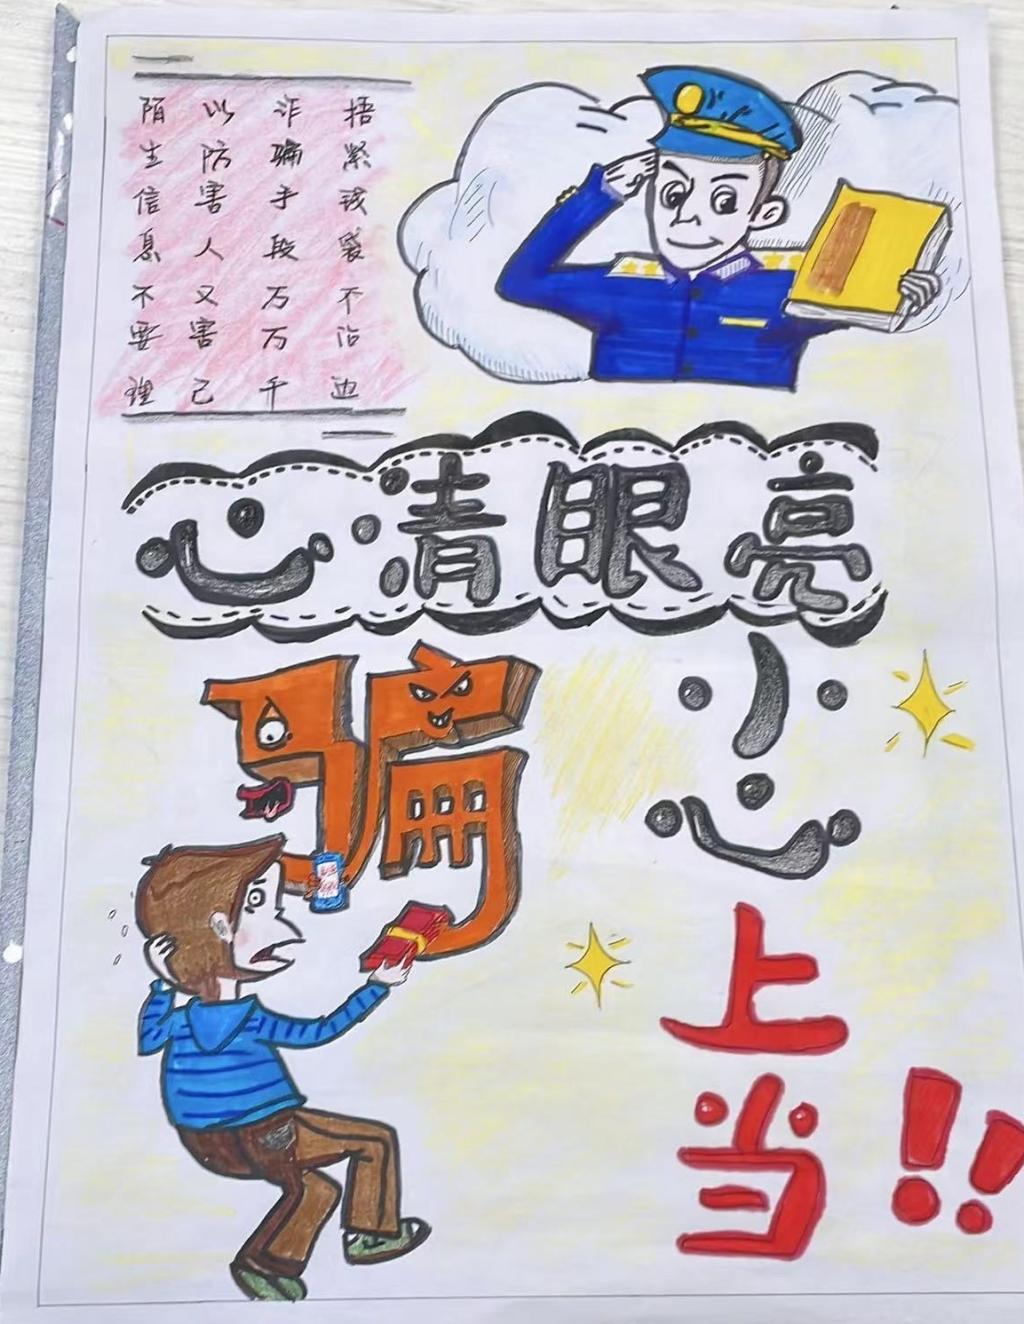 陌生信息不要理
以防害人又害己
诈骗手段万万千
捂紧钱袋不沾边
心清眼亮
骗
小心
上当!!